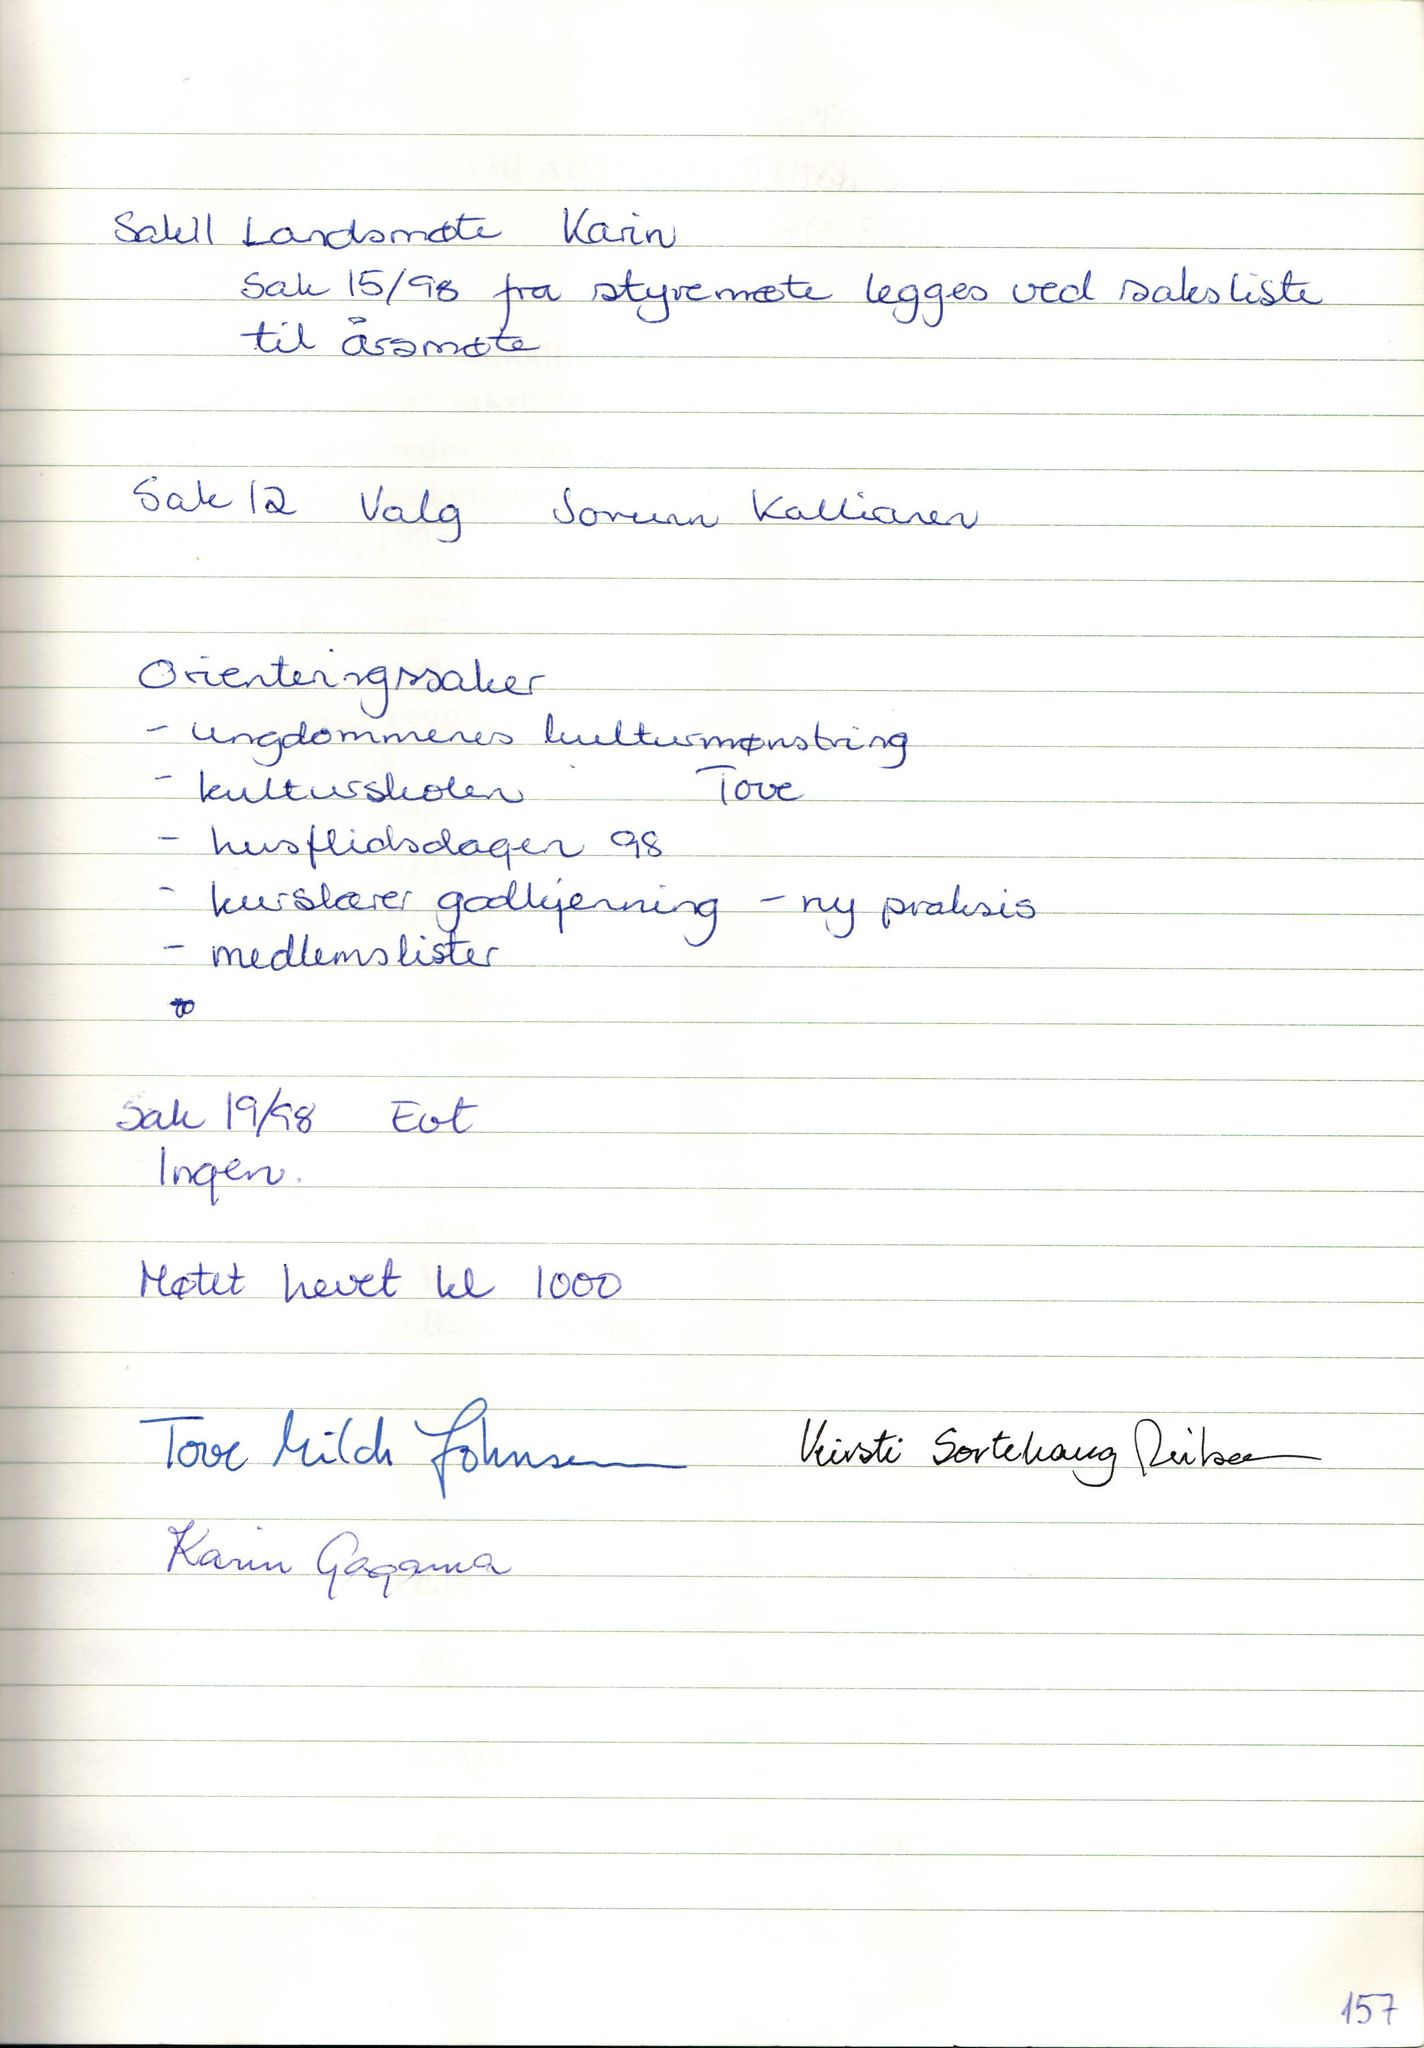 Sak 11 Landsmøte Karin
Sak 15/98 fra styremøte legges ved saksliste
til årsmøte
Sak 12 Valg Jorunn
Orienteringssaker
- ungdommenes kulturmønstring
- kulturskolen Tove
- husflidsdagen 98
- kurslærer godkjenning - ny praksis
- medlemslister
Sak 19/98 Evt
Ingen.
Møtet hevet kl 1000
Tove Milch Johnsen Kirsti Sortehaug
Karin Gagama
157